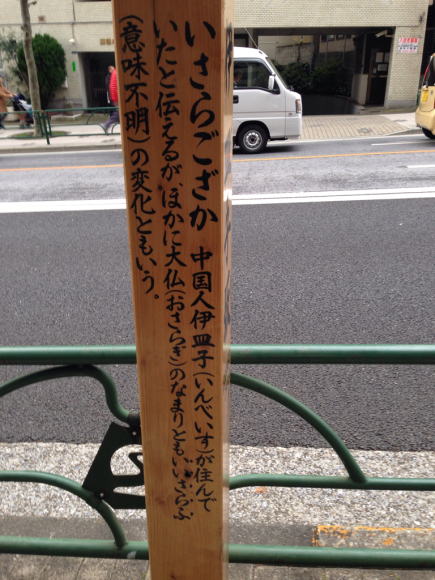 いさらござか 中国人伊皿子(いんべいす)が住んで
いたと伝えるが、ほかに大仏(おさらぎ)のなまりともいいさらふ
(意味不明)の変化ともいう。